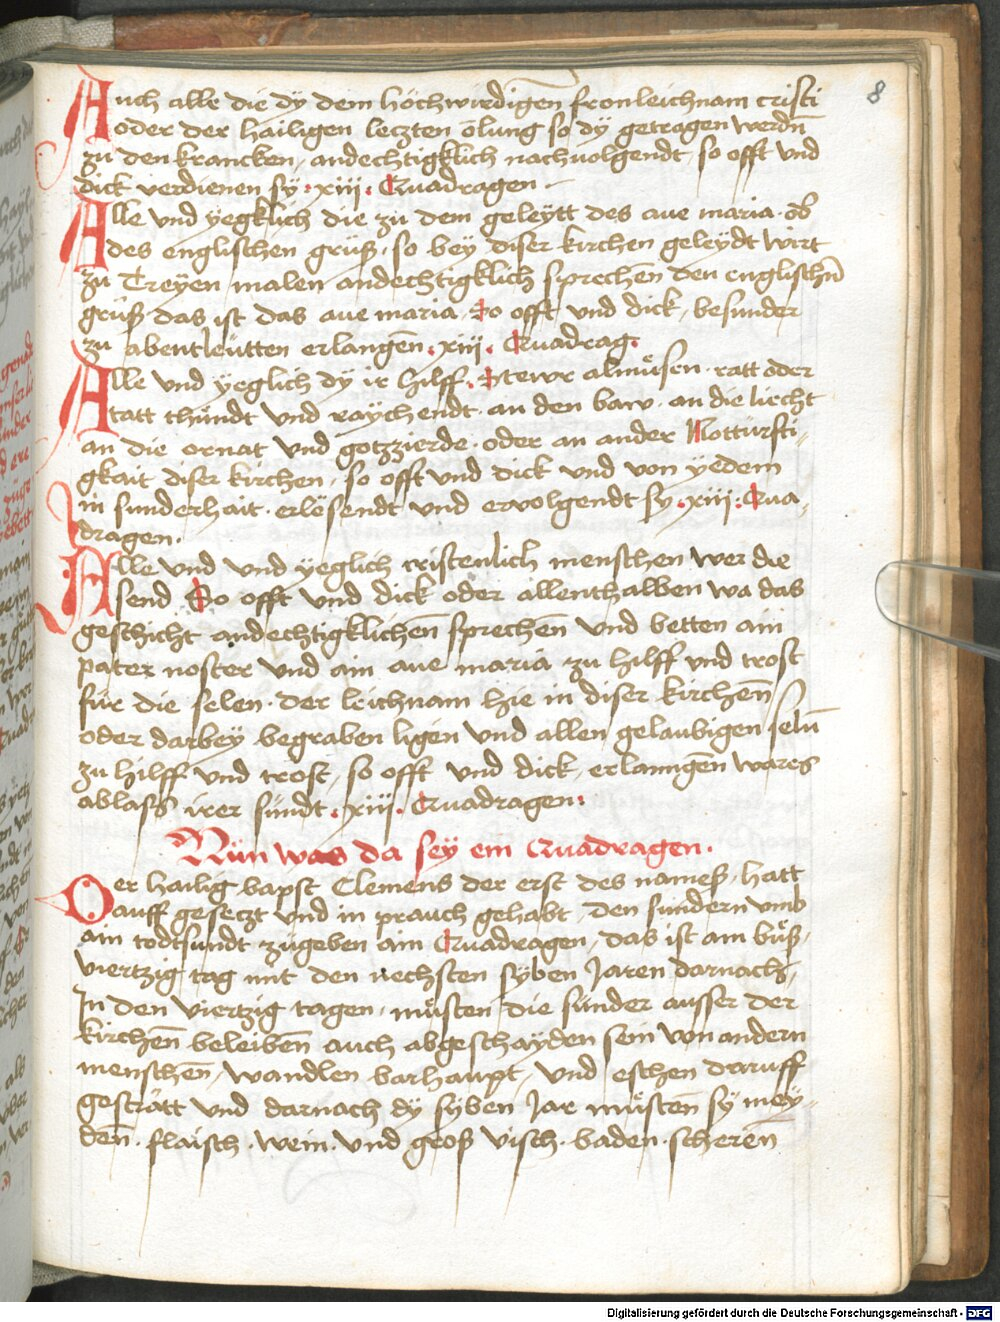 8
Auch alle die dy dem hochwirdigen fronleichnam cristi
oder der hailigen leczten ölung so dÿ getragen werdn̄
zu den krancken, andechtigklich nachuolgendt, so offt vnd
dick verdienen sÿ · xiii · Quadragen ·
Alle vnd yegklich die zu dem geleÿtt des aue maria · ob
des englischen grüß · so beÿ diser kirchen geleydt wirt
zu Treÿen malen andechtigklich sprechen̄ den englischn̄
grüß das ist das aue maria · So offt vnd dick, besunder
zu abentleütten erlangen̄ · xiii · Quadrag·
Alle vnd ÿeglich dÿ ir hilff · Stewr almüsen · ratt oder
tatt thündt vnd raÿchendt · an den baw · an die liecht
an die ornat vnd gotzzierde · oder an ander Notturfti,
gkait diser kirchen, so offt vnd dick vnd von yedem
in sunderhait · erlösendt vnd ervolgendt sÿ · xiii · Qua,
dragen ·
Alle vnd vnd ÿeglich cristenlich menschen wer die
send So offt vnd dick oder allenthalben wa das
geschicht andechtigklichen̄ sprechen̄ vnd betten ain
pater noster vnd ain aue maria zu hilff vnd trost
für die selen · der leichnam hie in diser kirchen̄
oder darbey begraben ligen vnd allen gelaubigen seln̄
zu hilff vnd trost, so offt vnd dick, erlanngen̄ wares
ablass irer sündt · xiii · Quadragen ·
Nün was da seÿ ein Quadragen ·
Der hailig bapst Clemens der erst des nameß, hatt
auff geseczt vnd in prauch gehabt, den sündern vmb
ain todtsundt zugeben ain Quadragen, das ist am büß,
viertzig tag mit den nechsten sÿben Jaren darnach,
In den viertzig tagen, müsten die sünder ausser der
kirchen̄ beleiben̄ auch abgeschaÿden sein von andern
menschen̄, wandlen barhaupt, vnd eschen daruff
gesträtt vnd darnach dÿ sÿben Jar müsten̄ sÿ meÿ,
den̄ · flaisch · wein · vnd groß visch · baden · scheren̄
Digitalisierung gefördert durch die Deutsche Forschungsgemeinschaft - DFG